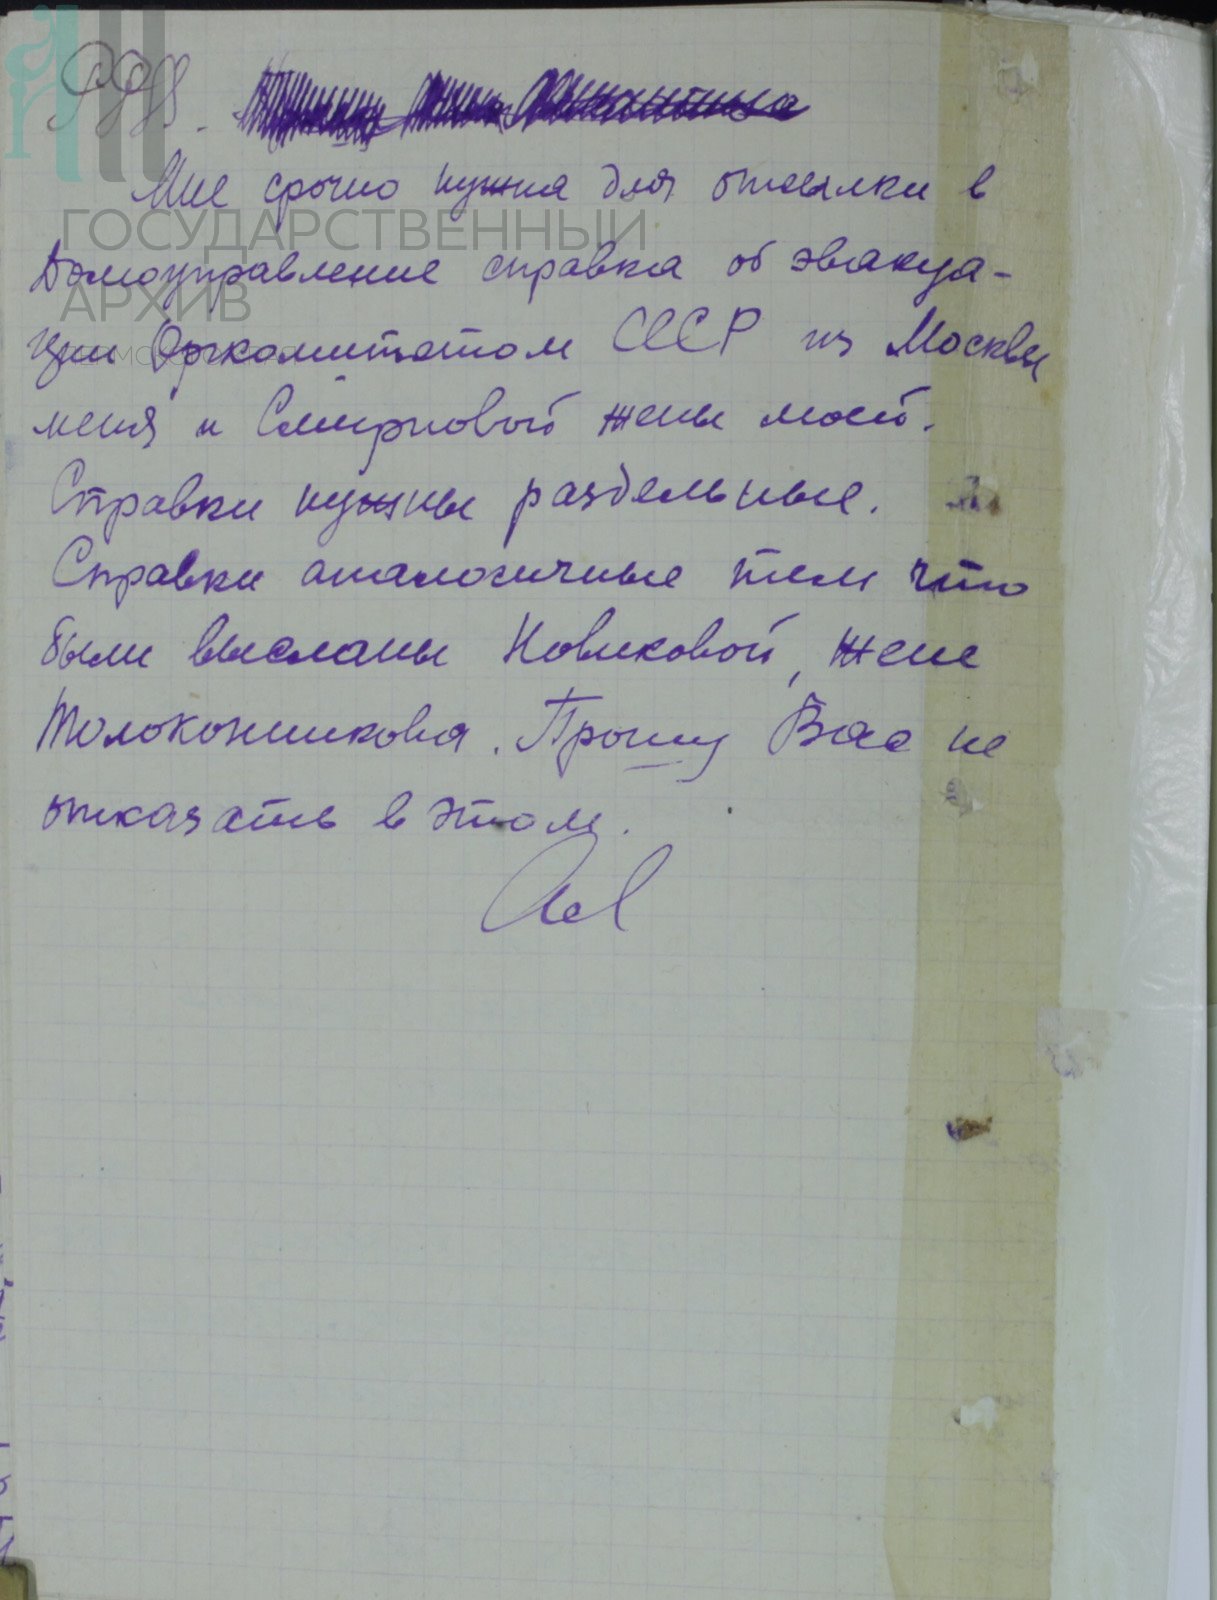 Мне срочно нужна для отсылки в
Домоуправление справка об эвакуа-
ции Оргкомитетом СССР из Москвы
меня и Смирновой жены моей.
Справки нужны раздельные.
Справки аналогичные тем что
были высланы Новиковой, жене
Толоконникова. Прошу Вас не
отказать в этом.
ГОСУДАРСТВЕННЫЙ
АРХИВ